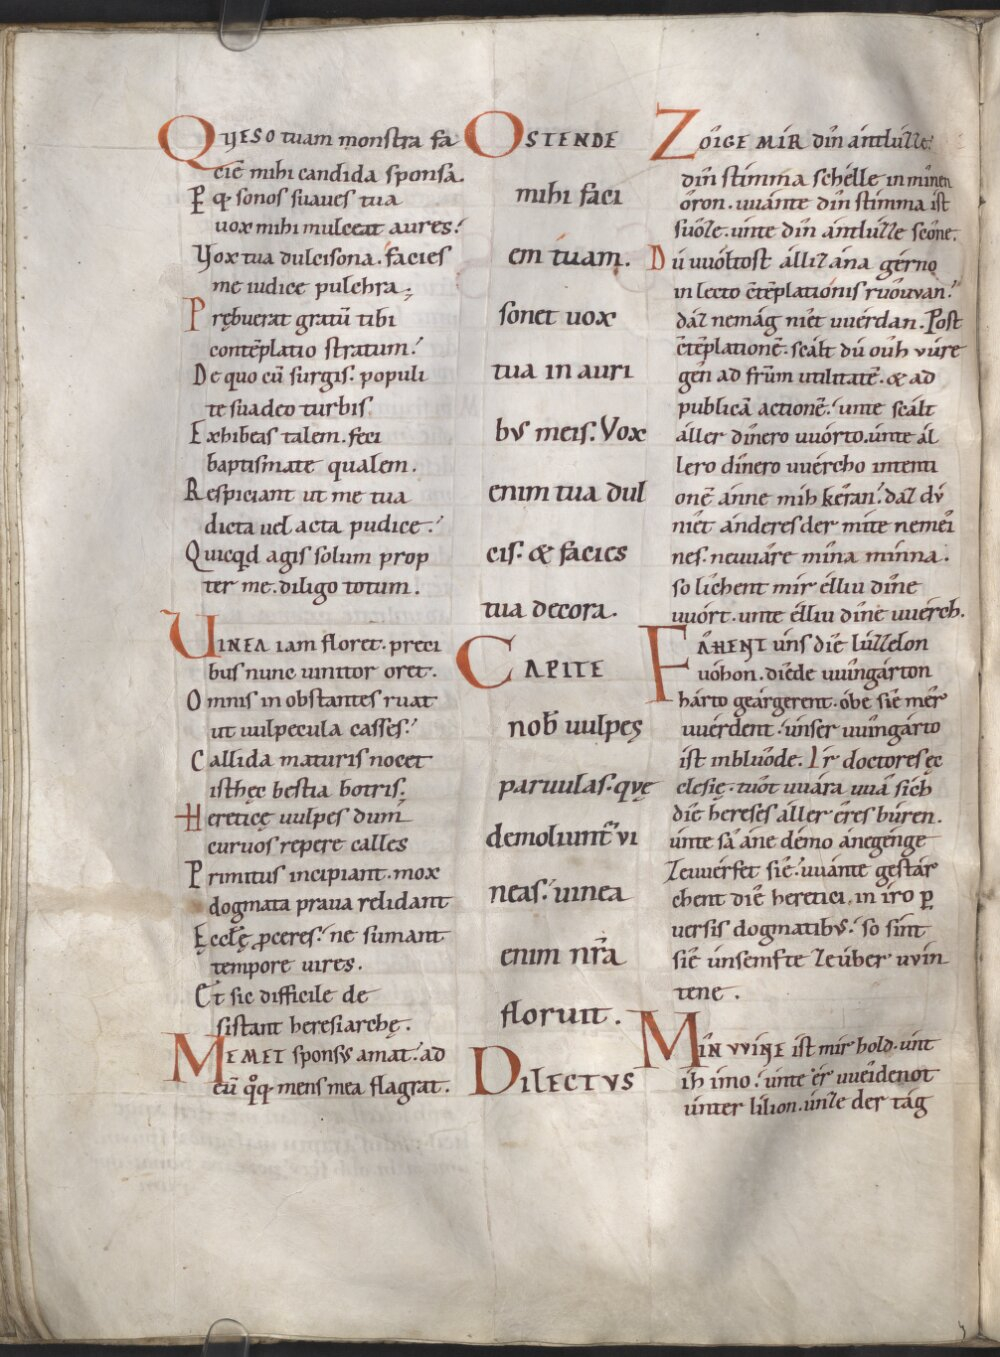 Qւeso tuam monstra fa
ciē mihi candida sponsa.
Et q; sonos suaues tua
uox mihi mulceat aures.
Vox tua dulcisona. facies
me iudice pulchra;
Prębuerat gratū tibi
contēplatio stratum.
De quo cū surgis. populi
te suadeo turbis.
Exhibeas talem. feci
baptismate qualem.
Respiciant ut me tua
dicta uel acta pudice.
Quicqd agis solum prop
ter me. diligo totum.
VINEA iam floret. preci
bus nunc uinitor oret.
Omnis in obstantes ruat
ut uulpecula casses.
Callida maturis nocet
isthęc bestia botris.
Heretice̜ uulpes dum
curuos repere calles
Primitus incipiant. mox
dogmata praua relidant
Ęccłę ꝓceres. ne sumant
tempore uires.
Et sic difficile de
sistant heresiarchę.
MEMET sponsꝰ amat. ad
cū q̊q; mens mea flagrat.
OSTENDE
mihi faci
em tuam.
sonet uox
tua in auri
bꝰ meis. Vox
enim tua dul
cis. & facies
tua decora.
CAPITE
nob̄ uulpes
paruulas. quę
demoliunt᷑ ui
neas. uinea
enim nr̄a
floruit.
DILECTVS
ZÔIGE MIR dîn ántlúzze.
dîn stimma schélle in mînen
ôron. uuánte dîn stimma ist
suôze. unte dîn ántlúzze scône.
Dú uuóltost állizána gérno
in lecto cōtēplationis rúouuan.
dáz nemág niêt uuérdan. Post
cōtēplationē. scált dú oûh vúre
gên ad frūm utilitatē. & ad
publicā actionē. unte scált
áller dînero uuórto. unte ál
lero dînero uuércho intenti
onē ánne mih kêran. dáz dv́
niêt ánderes der míte nemêi
nes. neuuâre mîna mínna.
so lîchent mir élliu dîne
uuórt. unte élliu dîne uuérch.
FÂHENT úns díe lúzzelon
uóhon. díede uuîngárton
hárto geárgerent. óbe siê mêr
uuérdent. únser uuîngárto
ist in bluôde. Ír doctores ęc
clesię. tuôt uuára uuâ sích
díe hereses áller êres búren.
únte sâ áne démo ánegénge
zeuuérfet siê. uuánte gestár
chent díe heretici. in íro ꝑ
uersis dogmatibꝰ. so sínt
siê únsemfte ze úber uuin
tene.
MÎN VVINE ist mir hold. únt
íh imo. únte ér uuêidenot
únter lílion. únze der tág